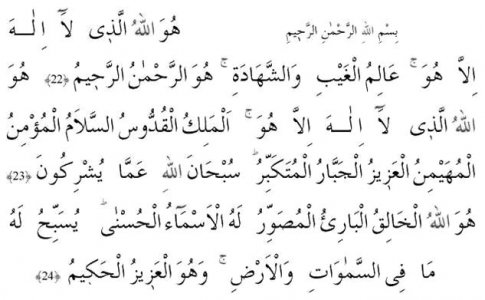 بِسْمِ اللهِ الرَّحْمٰنِ الرَّح۪يمِ هُوَ اللهُ الَّذ۪ى لَٓا اِلٰـهَ
اِلَّا هُوَ ۚ عَالِمُ الْغَيْبِ وَالشَّهَادَةِ ۚ هُوَ الرَّحْمٰنُ الرَّح۪يمُ ﴿22﴾ هُوَ
اللهُ الَّذ۪ى لَٓا اِلٰـهَ اِلَّا هُوَ ۚ اَلْمَلِكُ الْقُدُّوسُ السَّلَامُ الْمُؤْمِنُ
الْمُهَيْمِنُ الْعَز۪يزُ الْجَبَّارُ الْمُتَكَبِّرُ ۜ سُبْحَانَ اللهِ عَمَّا يُشْرِكُونَ ﴿23﴾
هُوَ اللهُ الْخَالِقُ الْبَارِئُ الْمُصَوِّرُ لَهُ الْاَسْمَٓاءُ الْحُسْنٰى ۜ يُسَبِّحُ لَهُ
مَا فِى السَّمٰوَاتِ وَالْاَرْضِ ۚ وَهُوَ الْعَز۪يزُ الْحَك۪يمُ ﴿24﴾